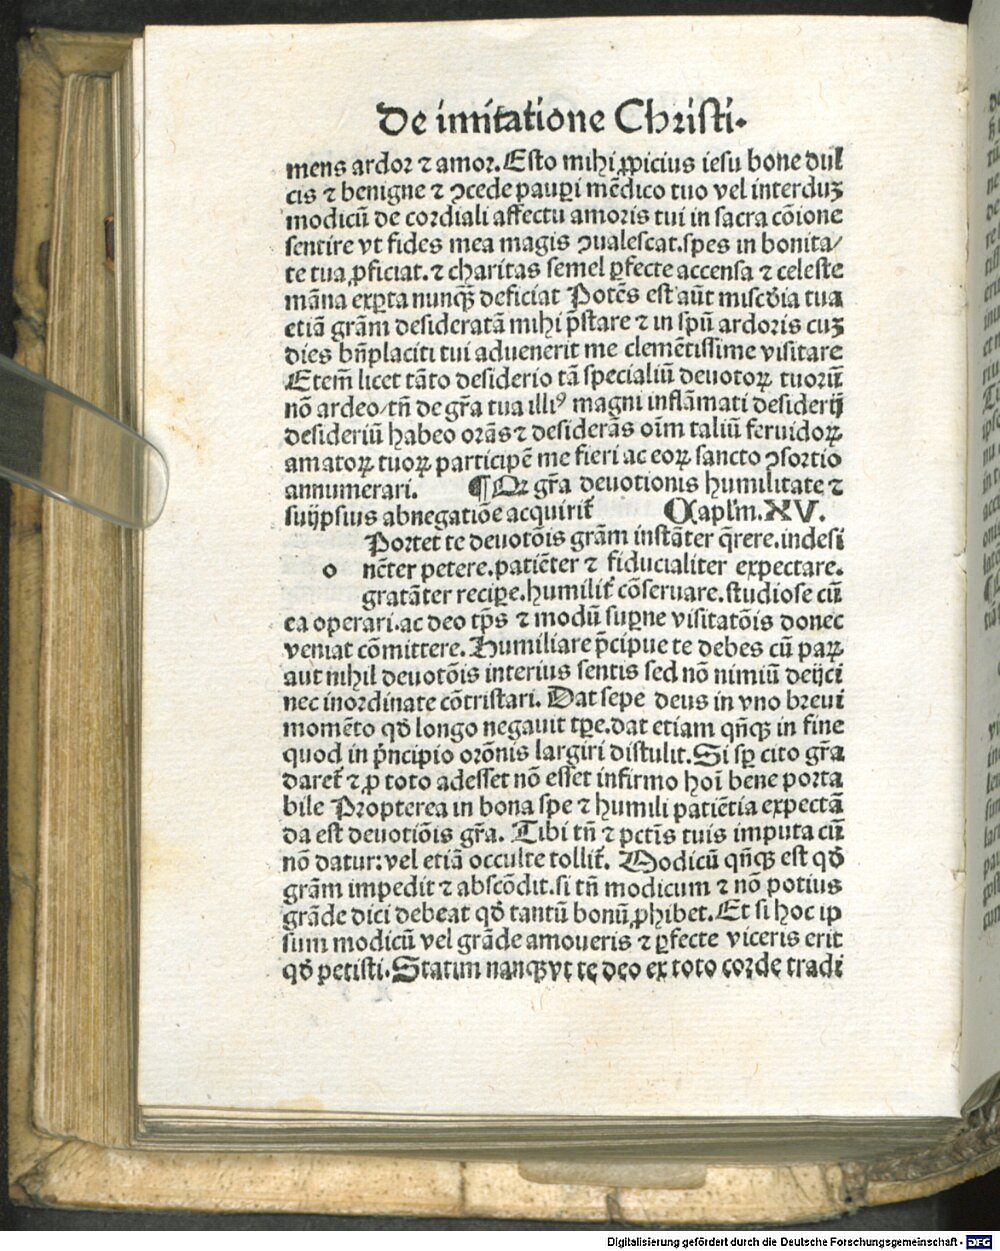 De imitatione Christi.
mens ardor ⁊ amor. Esto mihi ꝓpicius iesu bone dul
cis ⁊ benigne ⁊ ꝯcede paupi mēdico tuo vel interduꝫ
modicū de cordiali affectu amoris tui in sacra cōione
sentire vt fides mea magis ꝯualescat. spes in bonita/
te tua ꝓficiat. ⁊ charitas semel ꝑfecte accensa ⁊ celeste
māna exꝑta nunqꝫ̄ deficiat Potēs est aūt miscd̄ia tua
etiā grām desideratā mihi p̄stare ⁊ in spū ardoris cuꝫ
dies bn̄placiti tui aduenerit me clemētissime visitare
Etem̄ licet tāto desiderio tā specialiū deuotoꝝ tuorū
nō ardeo/tn̄ de gr̄a tua illiꝰ magni inflāmati desiderij
desideriū habeo orās ⁊ desiderās oīm taliū feruidoꝝ
amatoꝝ tuoꝝ participē me fieri ac eoꝝ sancto ꝯsortio
annumerari. ¶ Qr gr̄a deuotionis humilitate ⁊
suijpsius abnegatiōe acquirit̄ Capl'm. XV.
o Portet te deuotōis grām instāter q̄rere. indesi
nēter petere. patiēter ⁊ fiducialiter expectare.
gratāter recipe. humilit̄ cōseruare. studiose cū
ea operari. ac deo tp̄s ⁊ modū supne visitatōis donec
veniat cōmittere. Humiliare p̄cipue te debes cū paꝝ
aut nihil deuotōis interius sentis sed nō nimiū deijci
nec inordinate cōtristari. Dat sepe deus in vno breui
momēto qd̄ longo negauit tꝑe. dat etiam qn̄qꝫ in fine
quod in p̄ncipio orōnis largiri distulit. Si sꝑ cito gr̄a
daret̄ ⁊ ꝓ toto adesset nō esset infirmo hoī bene porta
bile Propterea in bona spe ⁊ humili patiētia expectā
da est deuotiōis gr̄a. Tibi tn̄ ⁊ pctīs tuis imputa cū
nō datur: vel etiā occulte tollit̄. Modicū qn̄qꝫ est qd̄
grām impedit ⁊ abscōdit. si tn̄ modicum ⁊ nō potius
grāde dici debeat qd̄ tantū bonū ꝓhibet. Et si hoc ip
sum modicū vel grāde amoueris ⁊ ꝑfecte viceris erit
qd̄ petisti. Statim nanqꝫ vt te deo ex toto corde tradi
Digitalisierung gefördert durch die Deutsche Forschungsgemeinschaft - DFG